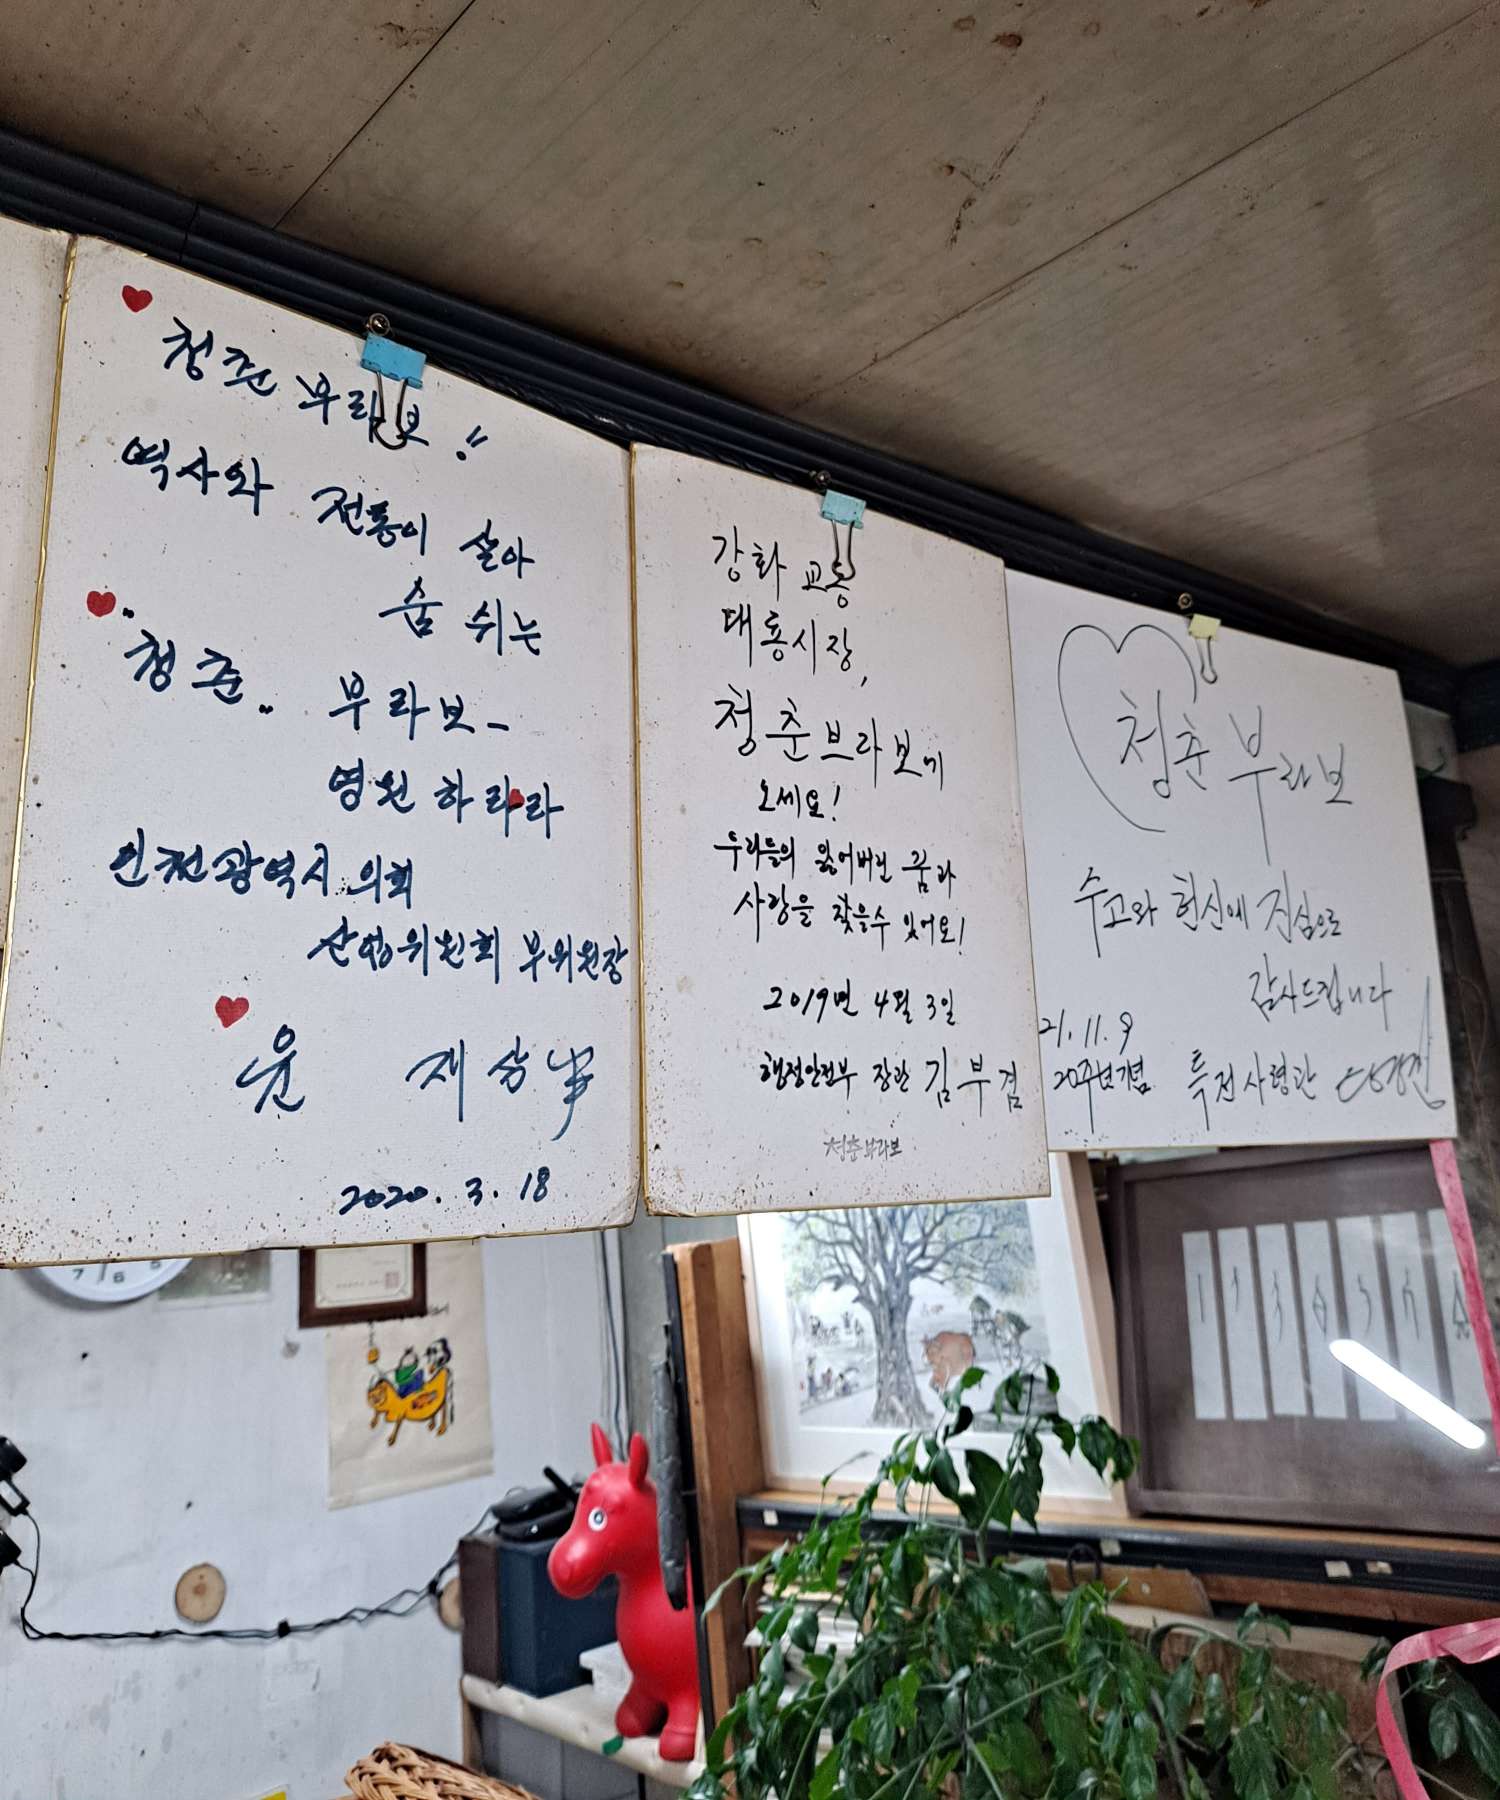 청춘 부라보!!
역사와 전통이 살아
숨 쉬는
"청춘" 부라보-
영원하라라
인천광역시 의회
산업위원회 부위원장
윤 재상
2020. 3. 18
강화 교동
대룡시장,
청춘브라보에
오세요!
우리들의 잃어버린 꿈과
사랑을 찾을수 있어요!
2019년 4월 3일
행정안전부 장관 김부겸
청춘브라보
청춘 부라보
수고와 헌신에 진심으로
감사드립니다
21. 11. 9
20주년기념 특전사령관
7 6 5